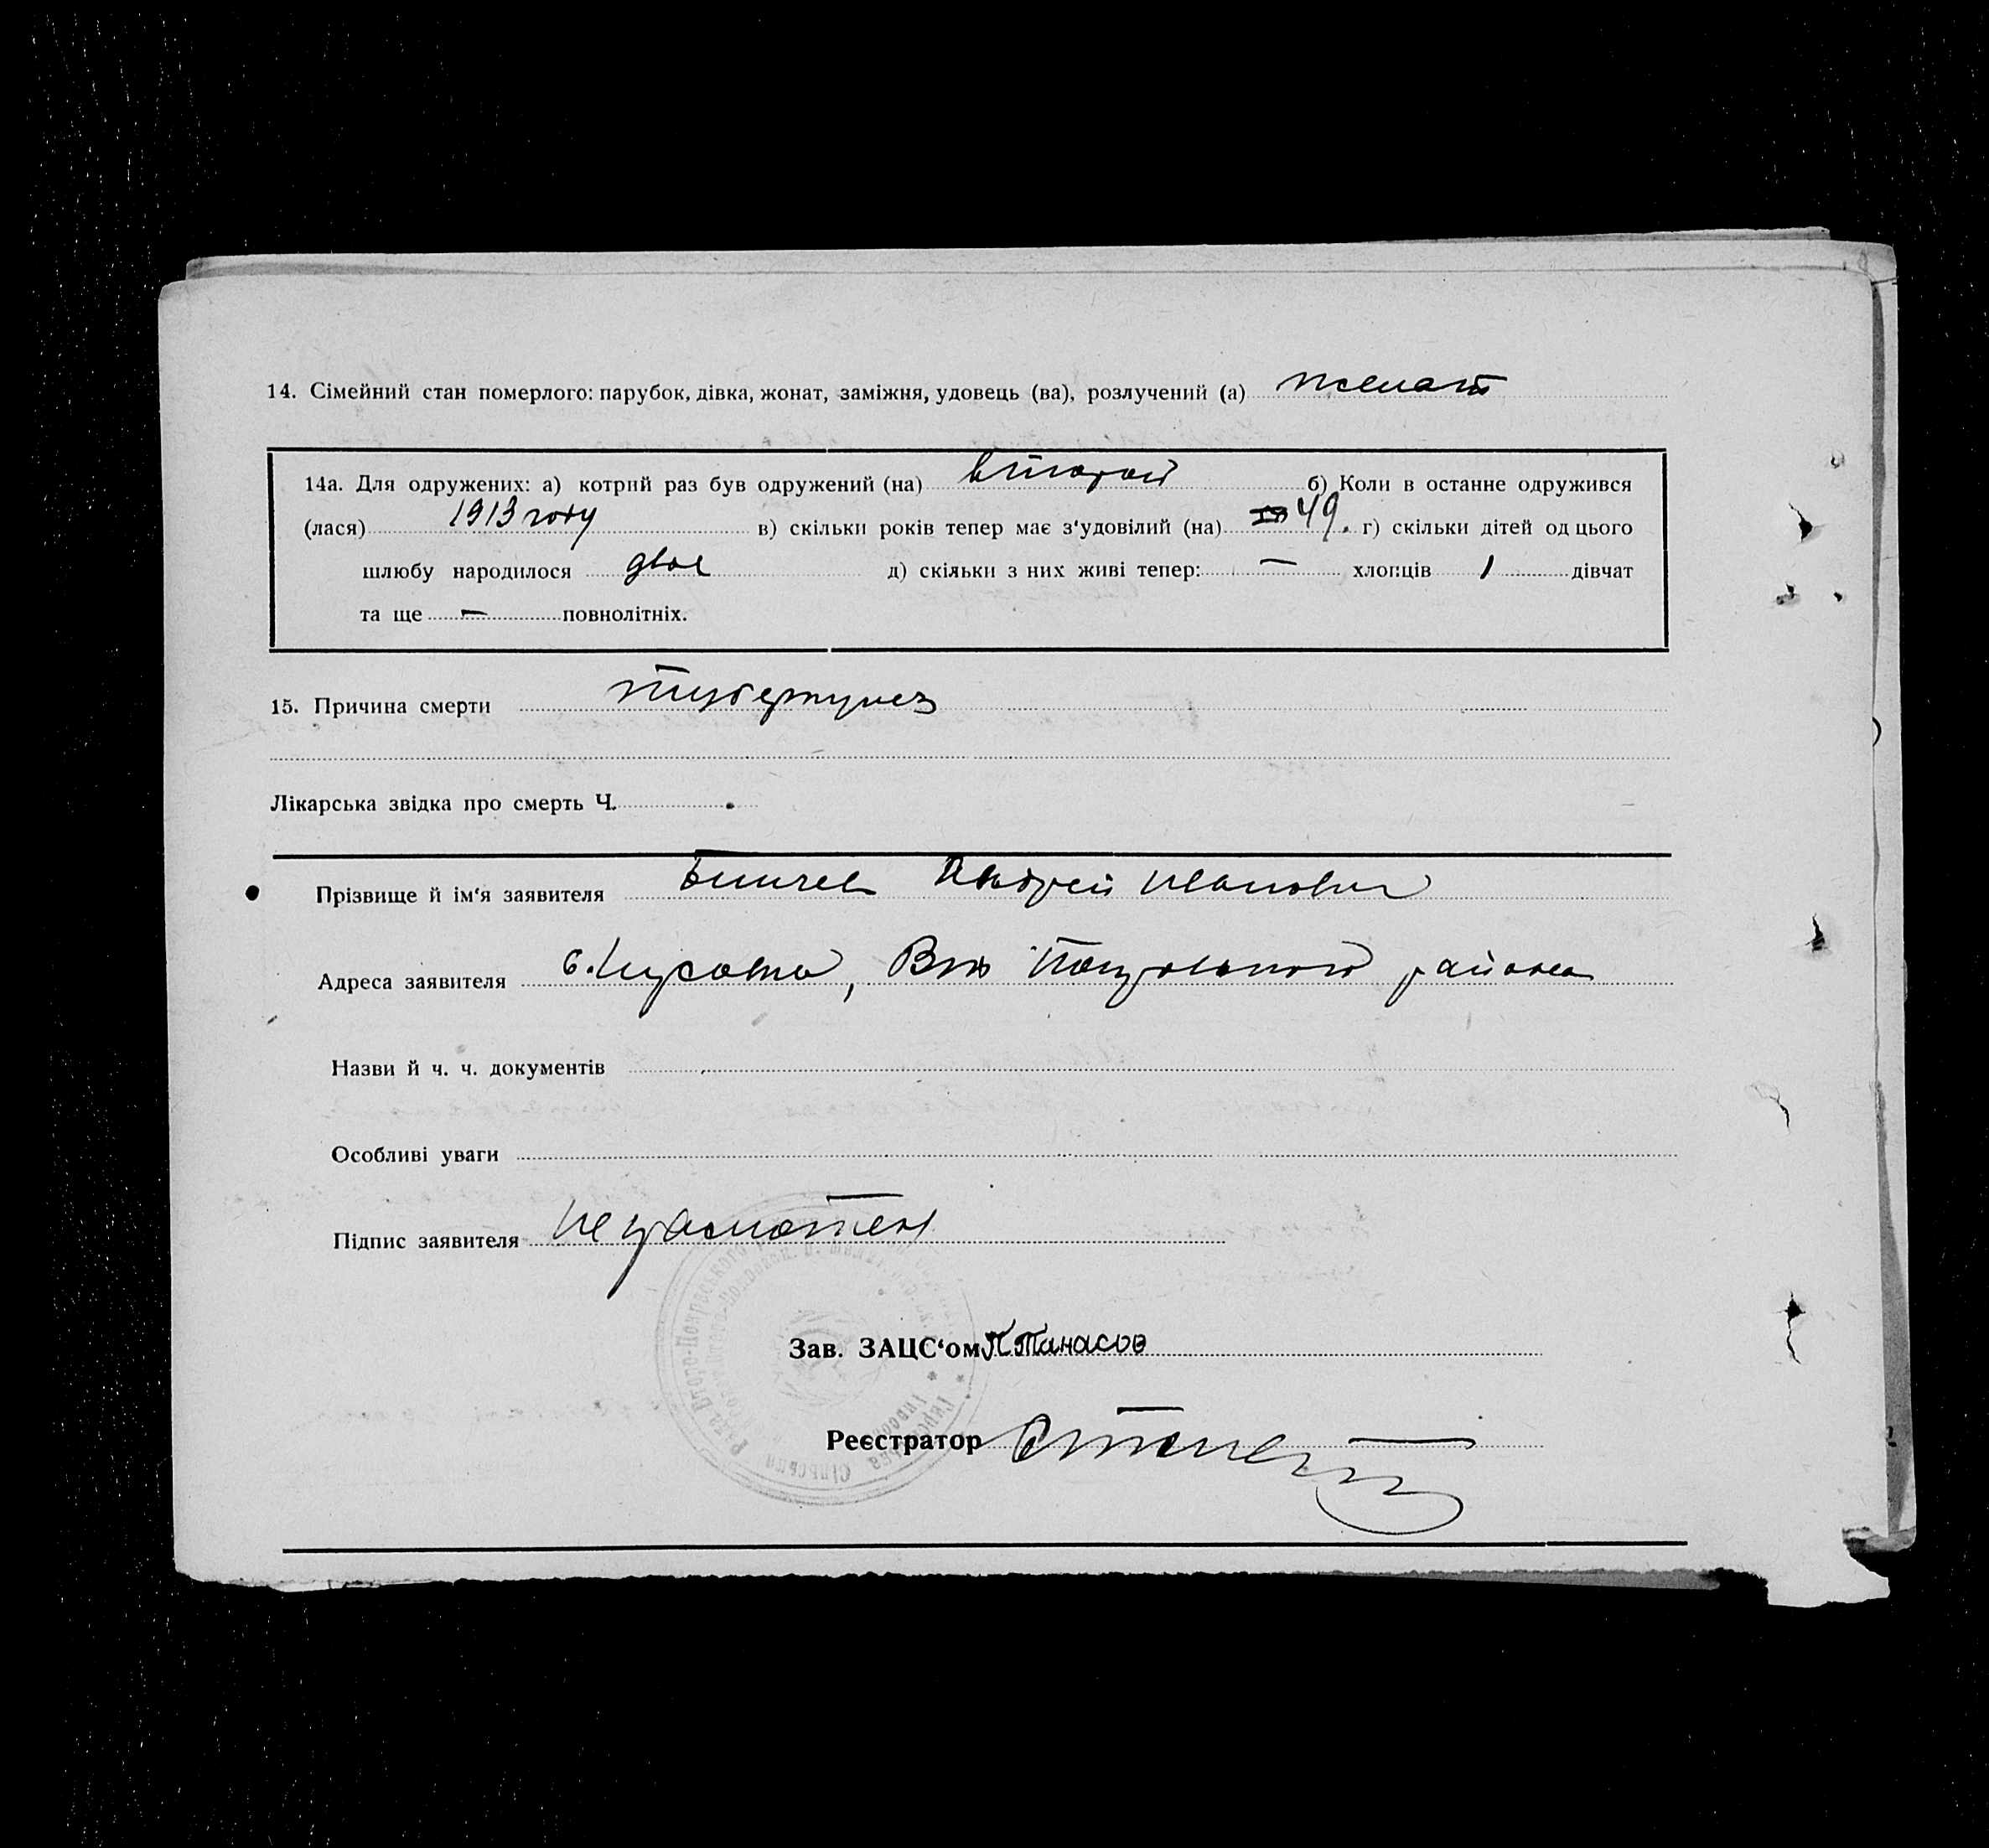 14. Сімейний стан померлого: парубок, дівка, жонат, заміжня, удовець (ва), розлучений (а) женат
14а. Для одружених: а) котрий раз був одружений (на) второй б) Коли в останне одружився
(лася) 1913 году в) скільки років тепер має з'удовілий (на) 49. г) скільки дітей од цього
шлюбу народилося двое д) скільки з них живі тепер: — хлопців 1 дівчат
та ще — повнолітніх.
15. Причина смерти туберкулез
Лікарська звідка про смерть Ч.
Прізвище й ім'я заявителя Андрей Иванович
Адреса заявителя с. района
Назви й ч. ч. документів
Особливі уваги
Підпис заявителя неграмотен
Зав. ЗАЦС'ом П Танасов
Реєстратор